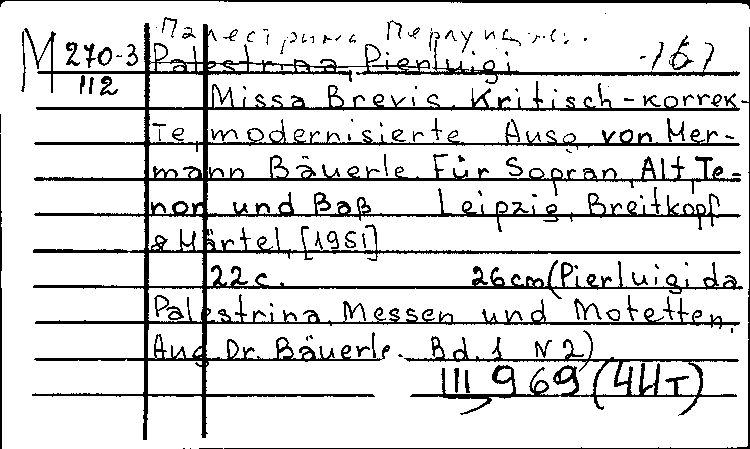 Палестрина Перлуиджи.
М 270-3 Palestrina, Pierluigi
112
Missa Brevis. Kritisch-korrek-
te, modernisierte Ausg. von Her-
mann Bäuerle. Für Sopran, Alt, Te-
nor und Baß Leipzig, Breitkopf
& Härtel, [1951]
22 c. 26 cm (Pierluigi da
Palestrina. Messen und Motetten.
Aug Dr. Bäuerle. Bd. 1 N 2)
969 (4Ит)